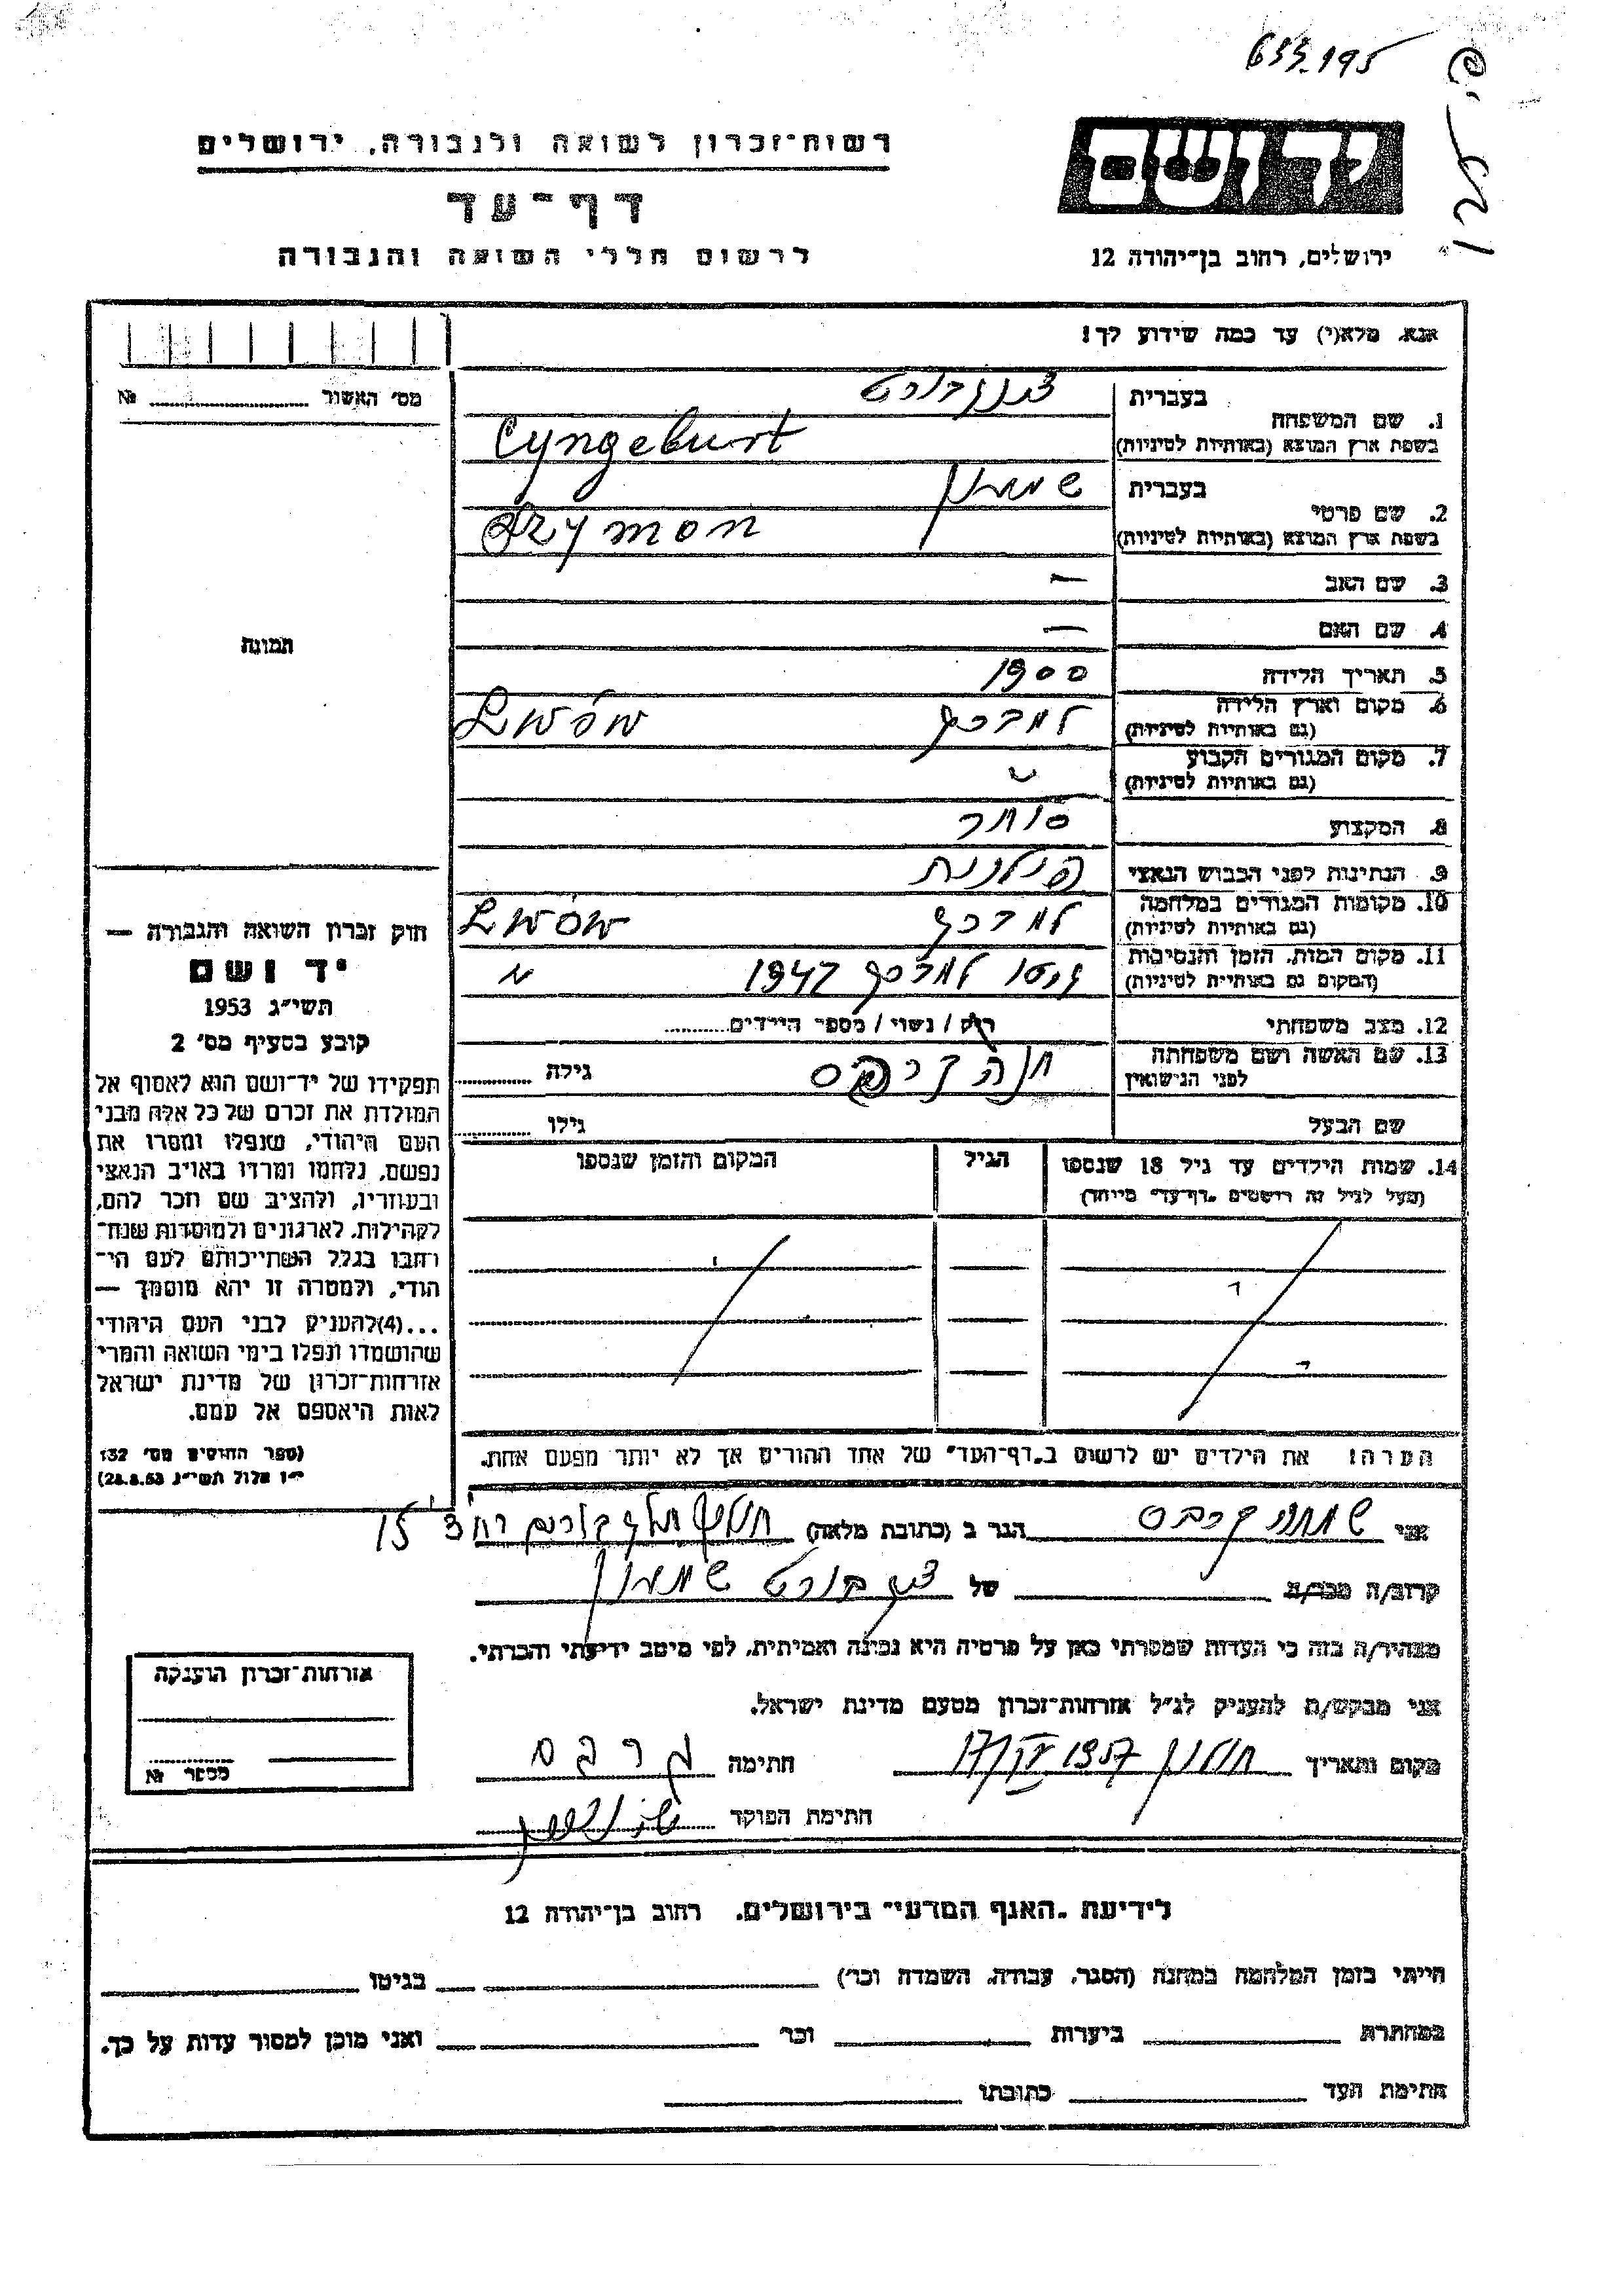 633195
רשות־זכרון לשואה ולגבורה, ירושלים
יד ושם
דף־עד
לרשום חללי השואה והגבורה
ירושלים, רחוב בן־יהודה 12
אנא, מלא(י) עד כמה שידוע לך!
מס' האשור № 
1. שם המשפחה
בעברית
בשפת ארץ המוצא (באותיות לטיניות)
Cyngeburt
2. שם פרטי
בעברית שמעון
בשפת ארץ המוצא (באותיות לטיניות)
Szymon
3. שם האב —
4. שם האם —
תמונה
5. תאריך הלידה 1900
6. מקום וארץ הלידה
(גם באותיות לטיניות)
למברג Lwów
7. מקום המגורים הקבוע
(גם באותיות לטיניות)
"
8. המקצוע סוחר
9. הנתינות לפני הכבוש הנאצי פולנית
10. מקומות המגורים במלחמה
(גם באותיות לטיניות)
למברג Lwów
11. מקום המות, הזמן והנסיבות
(המקום גם באותיות לטיניות)
גיטו למברג 1942 "
12. מצב משפחתי רוק / נשוי / מספר הילדים
13. שם האשה ושם משפחתה
לפני הנישואין
חנה גילה
שם הבעל גילו
14. שמות הילדים עד גיל 18 שנספו
(מעל לגיל זה רושמים "דף־עד" מיוחד)
הגיל
המקום והזמן שנספו
הערה! את הילדים יש לרשום ב"דף־העד" של אחד ההורים אך לא יותר מפעם אחת.
חוק זכרון השואה והגבורה —
יד ושם
תשי״ג 1953
קובע בסעיף מס' 2
תפקידו של יד־ושם הוא לאסוף אל
המולדת את זכרם של כל אלה מבני
העם היהודי, שנפלו ומסרו את
נפשם, נלחמו ומרדו באויב הנאצי
ובעוזריו, ולהציב שם וזכר להם,
לקהילות, לארגונים ולמוסדות שנח־
רחבו בגלל השתייכותם לעם הי־
הודי, ולמטרה זו יהא מוסמך —
...(4)להעניק לבני העם היהודי
שהושמדו ונפלו בימי השואה והמרי
אזרחות־זכרון של מדינת ישראל
לאות היאספם אל עמם.
(ספר החוקים מס' 132
י״ז אלול תשי״ג 28.8.53)
אני הגר ב (כתובת מלאה) 15
קרוב/ה מכר/ה של שמעון
מצהיר/ה בזה כי העדות שמסרתי כאן על פרטיה היא נכונה ואמיתית, לפי מיטב ידיעתי והכרתי.
אני מבקש/ת להעניק לנ״ל אזרחות־זכרון מטעם מדינת ישראל.
מקום ותאריך חולון 1957 חתימה
חתימת הפוקד
אזרחות־זכרון הוענקה
מספר №
לידיעת "האגף המדעי" בירושלים, רחוב בן־יהודה 12
הייתי בזמן המלחמה במחנה (הסגר, עבודה, השמדה וכו') בגיטו
במחתרת ביערות וכו' ואני מוכן למסור עדות על כך.
חתימת העד כתובתו